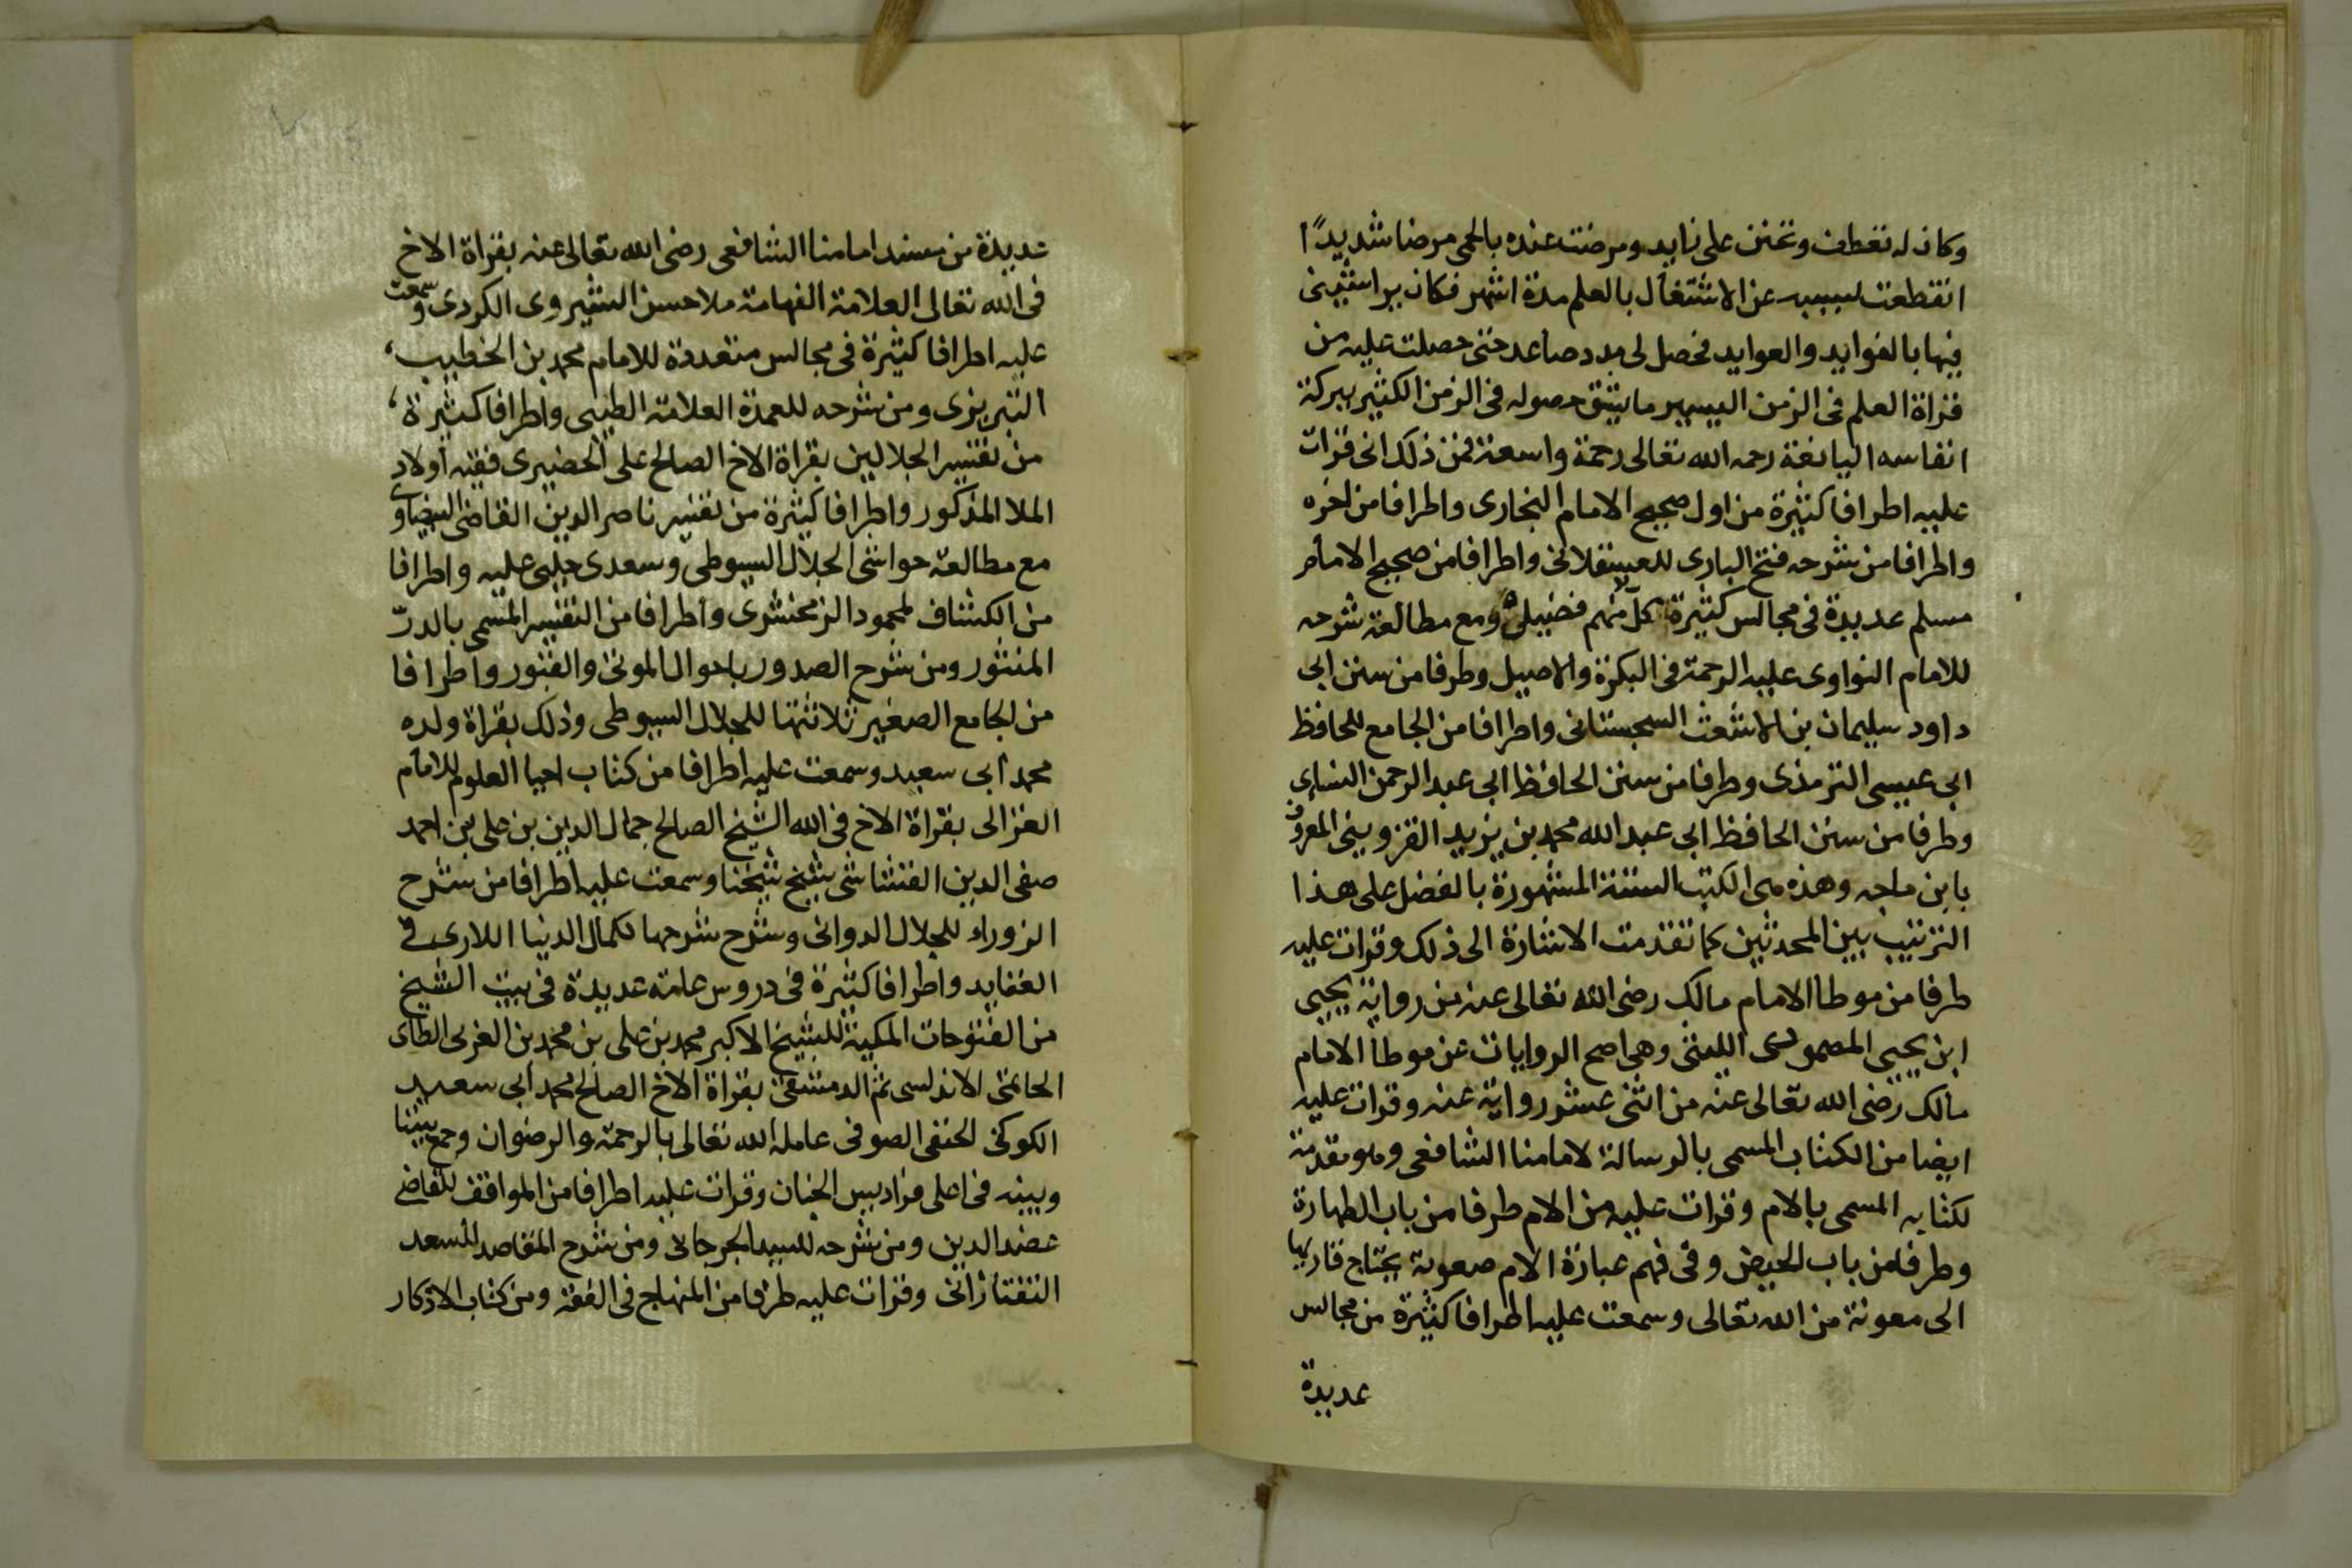 وكان له تعطف وتحنن على زايد ومرضت عنده بالحمى مرضا شديدًا
انقطعت بسببه عن الاشتغال بالعلم مدة اشهر فكان يراشيني
فيها بالفوايد والعوايد فحصل لى مدد صاعد حتى حصلت عليه من
قراة العلم فى الزمن اليسير ما يشق حصوله فى الزمن الكثير ببركة
انفاسه اليانعة رحمه الله تعالى رحمة واسعة فمن ذلك انى قرات
عليه اطرافا كثيرة من اول صحيح الامام البخارى واطرافا من اخره
واطرافا من شرحه فتح البارى للعسقلانى واطرافا من صحيح الامام
مسلم عديدة فى مجالس كثيرة كل منهم فضيلة ومع مطالعة شرحه
للامام النواوى عليه الرحمة فى البكرة والاصيل وطرفا من سنن ابى
داود سليمان بن الاشعث السجستانى واطرافا من الجامع للحافظ
ابى عيسى الترمذى وطرفا من سنن الحافظ ابى عبد الرحمن النساى
وطرفا من سنن الحافظ ابى عبد الله محمد بن يزيد القزوينى المعروف
بابن ماجه وهذه هى الكتب الستة المشهورة بالفضل على هذا
الترتيب بين المحدثين كما تقدمت الاشارة الى ذلك وقرات عليه
طرفا من موطا الامام مالك رضى الله تعالى عنه من رواية يحيى
ابن يحيى المصمودى الليثى وهى اصح الروايات عن موطا الامام
مالك رضى الله تعالى عنه من اثنى عشر رواية عنه وقرات عليه
ايضا من الكتاب المسمى بالرسالة لامامنا الشافعى وهو مقدمة
لكتابه المسمى بالام وقرات عليه من الام طرفا من باب الطهارة
وطرفا من باب الحيض وفى فهم عبارة الام صعوبة يحتاج قاريها
الى معونة من الله تعالى وسمعت عليه اطرافا كثيرة من مجالس
عديدة
عديدة من مسند امامنا الشافعى رضى الله تعالى عنه بقراة الاخ
فى الله تعالى العلامة الفهامة ملا حسن الشيروى الكردى وسمعت
عليه اطرافا كثيرة فى مجالس متعددة للامام محمد بن الخطيب
التبريزى ومن شرحه للعمدة العلامة الطيبى واطرافا كثيرة
من تفسير الجلالين بقراة الاخ الصالح على الحضيرى فقيه اولاد
الملا المذكور واطرافا كثيرة من تفسير ناصر الدين القاضى البيضاوى
مع مطالعة حواشى الجلال السيوطى وسعدى جلبى عليه واطرافا
من الكشاف لمحمود الزمخشرى واطرافا من التفسير المسمى بالدرّ
المنثور ومن شرح الصدور باحوال الموتى والقبور واطرافا
من الجامع الصغير ثلاثتها للجلال السيوطى وذلك بقراة ولده
محمد ابى سعيد وسمعت عليه اطرافا من كتاب احيا العلوم للامام
الغزالى بقراة الاخ فى الله الشيخ الصالح جمال الدين بن على بن احمد
صفى الدين القشاشى شيخ شيخنا وسمعت عليه اطرافا من شرح
الزوراء للجلال الدوانى وشرح شرحها لكمال الدنيا اللارى فى
العقايد واطرافا كثيرة فى دروس عامة عديدة فى بيت الشيخ
من الفتوحات المكية للشيخ الاكبر محمد بن على بن محمد بن العربى الطاى
الحاتمى الاندلسى ثم الدمشقى بقراة الاخ الصالح محمد ابى سعيد
الكوكنى الحنفى الصوفى عامله الله تعالى بالرحمة والرضوان وجمع بيننا
وبينه فى اعلى فراديس الجنان وقرات عليه اطرافا من المواقف للقاضى
عضد الدين ومن شرحه للسيد الجرجانى ومن شرح المقاصد للسعد
التفتازانى وقرات عليه طرفا من المنهاج فى الفقه ومن كتاب الاذكار